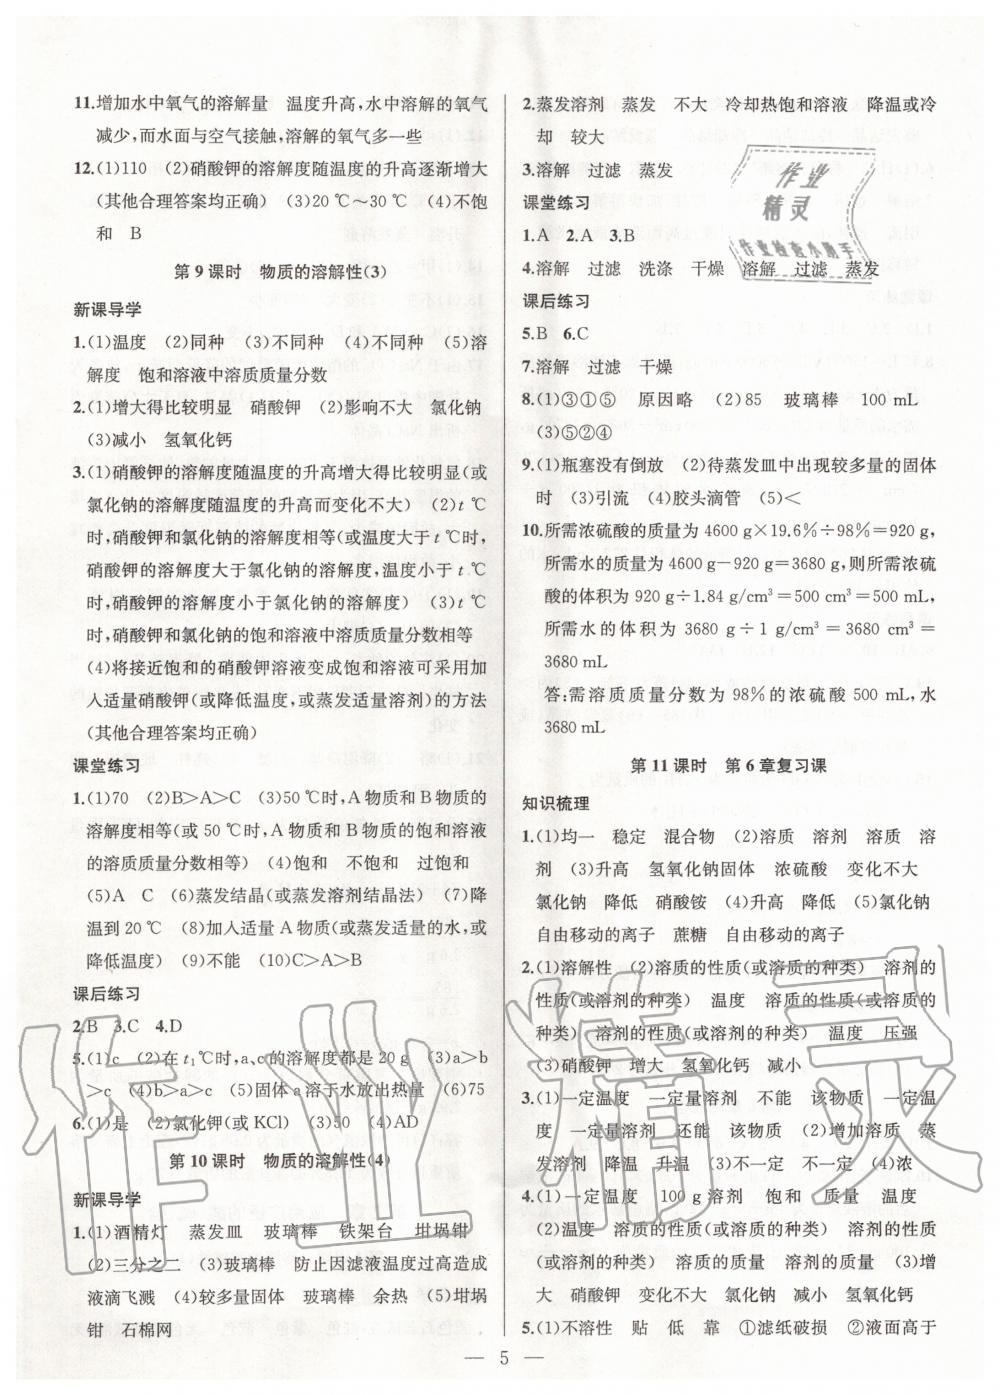 11.增加水中氧气的溶解量　温度升高,水中溶解的氧气
减少,而水面与空气接触,溶解的氧气多一些
12.(1)110　(2)硝酸钾的溶解度随温度的升高逐渐增大
(其他合理答案均正确)　(3)20 ℃～30 ℃　(4)不饱
和　B
第9课时　物质的溶解性(3)
新课导学
1.(1)温度　(2)同种　(3)不同种　(4)不同种　(5)溶
解度　饱和溶液中溶质质量分数
2.(1)增大得比较明显　硝酸钾　(2)影响不大　氯化钠
(3)减小　氢氧化钙
3.(1)硝酸钾的溶解度随温度的升高增大得比较明显(或
氯化钠的溶解度随温度的升高而变化不大)　(2)t ℃
时,硝酸钾和氯化钠的溶解度相等(或温度大于t ℃时,
硝酸钾的溶解度大于氯化钠的溶解度,温度小于t ℃
时,硝酸钾的溶解度小于氯化钠的溶解度)　(3)t ℃
时,硝酸钾和氯化钠的饱和溶液中溶质质量分数相等
(4)将接近饱和的硝酸钾溶液变成饱和溶液可采用加
入适量硝酸钾(或降低温度,或蒸发适量溶剂)的方法
(其他合理答案均正确)
课堂练习
1.(1)70　(2)B＞A＞C　(3)50 ℃时,A物质和B物质的
溶解度相等(或50 ℃时,A物质和B物质的饱和溶液
的溶质质量分数相等)　(4)饱和　不饱和　过饱和
(5)A　C　(6)蒸发结晶(或蒸发溶剂结晶法)　(7)降
温到20 ℃　(8)加入适量A物质(或蒸发适量的水,或
降低温度)　(9)不能　(10)C＞A＞B
课后练习
2.B　3.C　4.D
5.(1)c　(2)在t₁℃时,a、c的溶解度都是20 g　(3)a＞b
＞c　(4)b＞a＞c　(5)固体a溶于水放出热量　(6)75
6.(1)是　(2)氯化钾(或KCl)　(3)50　(4)AD
第10课时　物质的溶解性(4)
新课导学
1.(1)酒精灯　蒸发皿　玻璃棒　铁架台　坩埚钳
(2)三分之二　(3)玻璃棒　防止因滤液温度过高造成
液滴飞溅　(4)较多量固体　玻璃棒　余热　(5)坩埚
钳　石棉网
2.蒸发溶剂　蒸发　不大　冷却热饱和溶液　降温或冷
却　较大
3.溶解　过滤　蒸发
课堂练习
1.A　2.A　3.B
4.溶解　过滤　洗涤　干燥　溶解　过滤　蒸发
课后练习
5.B　6.C
7.溶解　过滤　干燥
8.(1)③①⑤　原因略　(2)85　玻璃棒　100 mL
(3)⑤②④
9.(1)瓶塞没有倒放　(2)待蒸发皿中出现较多量的固体
时　(3)引流　(4)胶头滴管　(5)＜
10.所需浓硫酸的质量为4600 g×19.6%÷98%＝920 g,
所需水的质量为4600 g－920 g＝3680 g,则所需浓硫
酸的体积为920 g÷1.84 g/cm³＝500 cm³＝500 mL,
所需水的体积为3680 g÷1 g/cm³＝3680 cm³＝
3680 mL
答:需溶质质量分数为98%的浓硫酸500 mL,水
3680 mL
第11课时　第6章复习课
知识梳理
1.(1)均一　稳定　混合物　(2)溶质　溶剂　溶质　溶
剂　(3)升高　氢氧化钠固体　浓硫酸　变化不大
氯化钠　降低　硝酸铵　(4)升高　降低　(5)氯化钠
自由移动的离子　蔗糖　自由移动的离子
2.(1)溶解性　(2)溶质的性质(或溶质的种类)　溶剂的
性质(或溶剂的种类)　温度　溶质的性质(或溶质的
种类)　溶剂的性质(或溶剂的种类)　温度　压强
(3)硝酸钾　增大　氢氧化钙　减小
3.(1)一定温度　一定量溶剂　不能　该物质　一定温
度　一定量溶剂　还能　该物质　(2)增加溶质　蒸
发溶剂　降温　升温　(3)不一定　不一定　(4)浓
4.(1)一定温度　100 g溶剂　饱和　质量　温度
(2)温度　溶质的性质(或溶质的种类)　溶剂的性质
(或溶剂的种类)　溶质的质量　溶剂的质量　(3)增
大　硝酸钾　变化不大　氯化钠　减小　氢氧化钙
5.(1)不溶性　贴　低　靠　①滤纸破损　②液面高于
— 5 —
作业
精灵
作业检查小助手
作业精灵